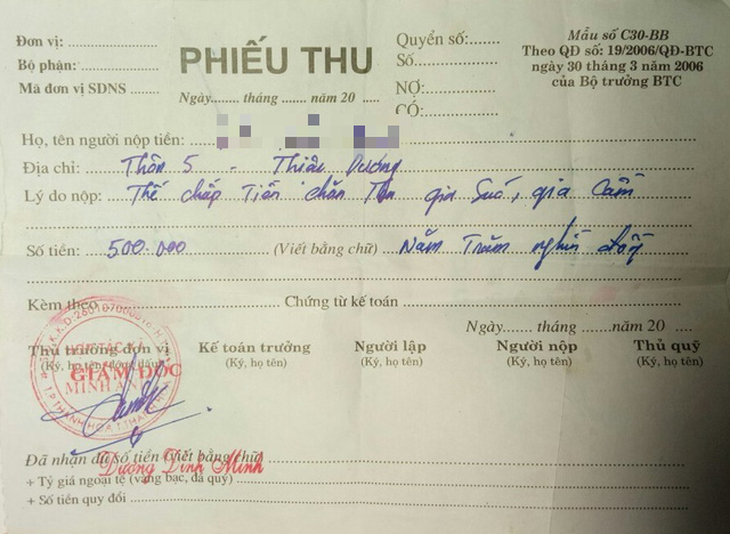 Đơn vị: ........
Bộ phận: ........
Mã đơn vị SDNS ........
PHIẾU THU
Ngày........ tháng ....... năm 20 .....
Quyển số:......
Số......
NỢ:......
CÓ:......
Mẫu số C30-BB
Theo QĐ số: 19/2006/QĐ-BTC
ngày 30 tháng 3 năm 2006
của Bộ trưởng BTC
Họ, tên người nộp tiền:
Địa chỉ: Thôn 5 - Thiệu Dương
Lý do nộp: Thế chấp Tiền chăn Thả gia Súc, gia Cầm
Số tiền: 500.000 (Viết bằng chữ) Năm Trăm nghìn đồng
Kèm theo ........ Chứng từ kế toán ........
Ngày....... tháng .......năm 20 ....
Thủ trưởng đơn vị Kế toán trưởng Người lập Người nộp Thủ quỹ
(Ký, họ tên, đóng dấu) (Ký, họ tên) (Ký, họ tên) (Ký, họ tên) (Ký, họ tên)
GIÁM ĐỐC
MINH ANH
Đã nhận đủ số tiền (viết bằng chữ) ........
Dương Đình Minh
+ Tỷ giá ngoại tệ (vàng bạc, đá quý) ........
+ Số tiền quy đổi ........